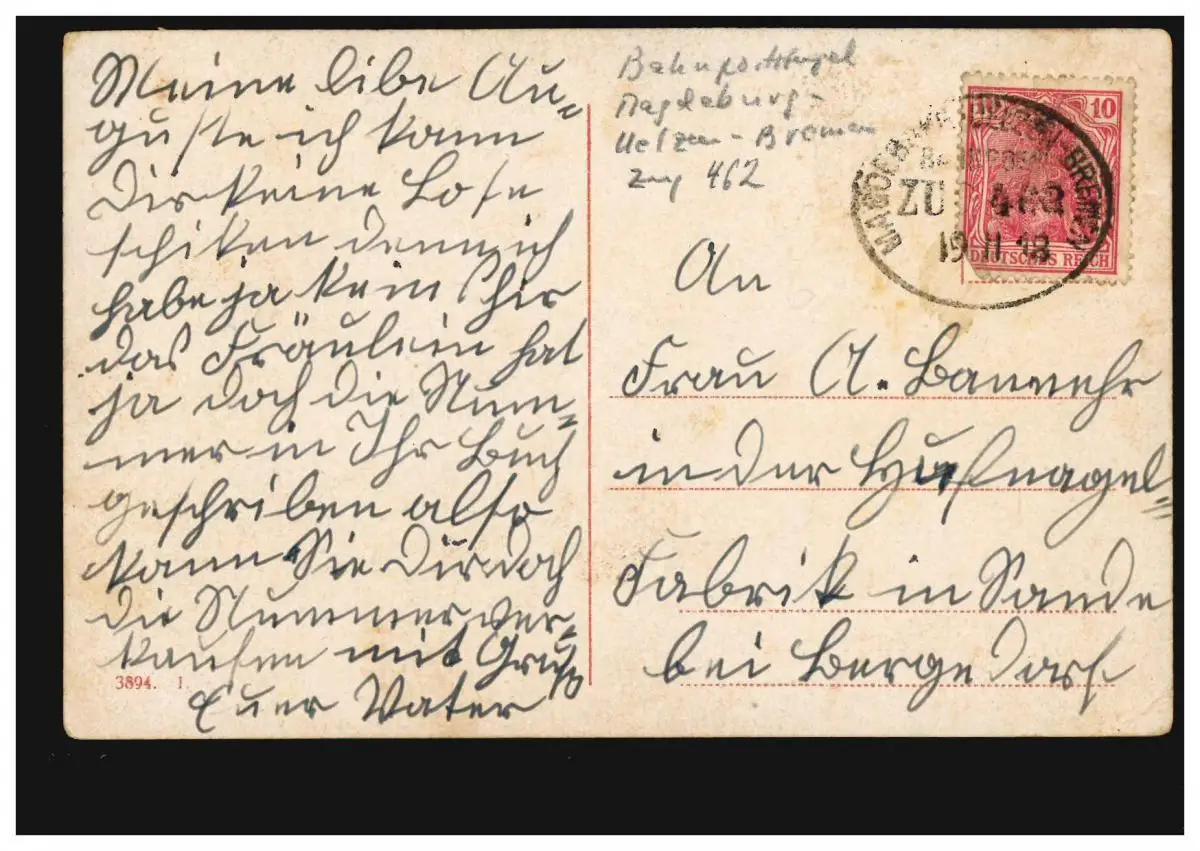 Meine libe Au=
guste ich kann
Dir keine Lose
schiken denn ich
habe ja keins hir
das Fräulein hat
ja doch die Num=
mer in Ihr Buch
geschriben also
kann Sie Dir doch
die Nummer ver=
kaufen mit Gruß
Euer Vater
3894. 1.
Bahnpoststempel
Magdeburg-
Uelzen-Bremen
Zug 462
MAGDEBURG UELZEN BREMEN
BAHNPOST
ZUG 462
19 11 18
10
DEUTSCHES REICH
An
Frau A. Bannehr
in der Hufnagel=
Fabrik in Sande
bei Bergedorf